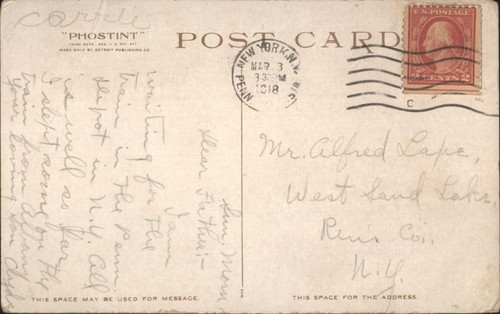 "PHOSTINT"
TRADE MARK
MADE ONLY BY DETROIT PUBLISHING CO.
POST CARD
U.S. POSTAGE
CENTS 2
NEW YORK, N.Y.
MAR 3
3 30 PM
1918
PENN
STA.
Sun. Morn.
Dear Father:-
I am
waiting for the
train in the Penn.
depot in N.Y. All
is well so far
I slept some on the
train from Albany
Your loving son
Mr. Alfred Lape,
West Sand Lake,
Rens Co.,
N.Y.
THIS SPACE MAY BE USED FOR MESSAGE.
THIS SPACE IS FOR THE ADDRESS.